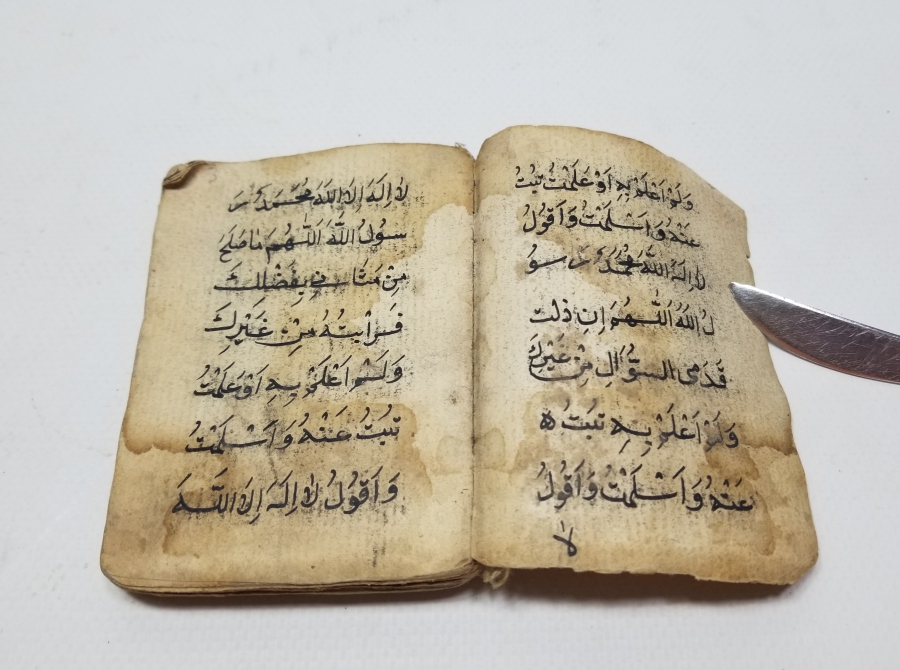 وَلَمْ اَعْلَمْ بِهِ اَوْ عَلِمْتُ تُبْتُ
عَنْهُ وَاَسْلَمْتُ وَاَقُولُ
لا اِلَهَ اِلا اللَّهُ مُحَمَّدٌ رَسُو
لُ اللَّهِ اَللَّهُمَ اِن ذلت
قَدَمِى السؤَالِ مِنْ غَيْرِكَ
وَلَمْ اَعْلَمْ بِهِ تُبْتُ ه
عَنْهُ وَاَسْلَمْتُ وَاَقُولُ
لا
لا اِلَهَ اِلا اللَّهَ مُحَمَّدٌ رَ
سُولُ اللَّهَ اَللَّهُمَ مَا صَلَحَ
مِنْ شَانِي بِفَضْلِكَ
فَرَايتُهُ مِنْ غَيْرِكَ
وَلَمْ اَعْلَمْ بِهِ اَوْ عَلِمْتُ
تُبْتُ عَنْهُ وَاَسْلَمْتُ
وَاَقُولُ لا اِلَهَ اِلا اللَّهَ